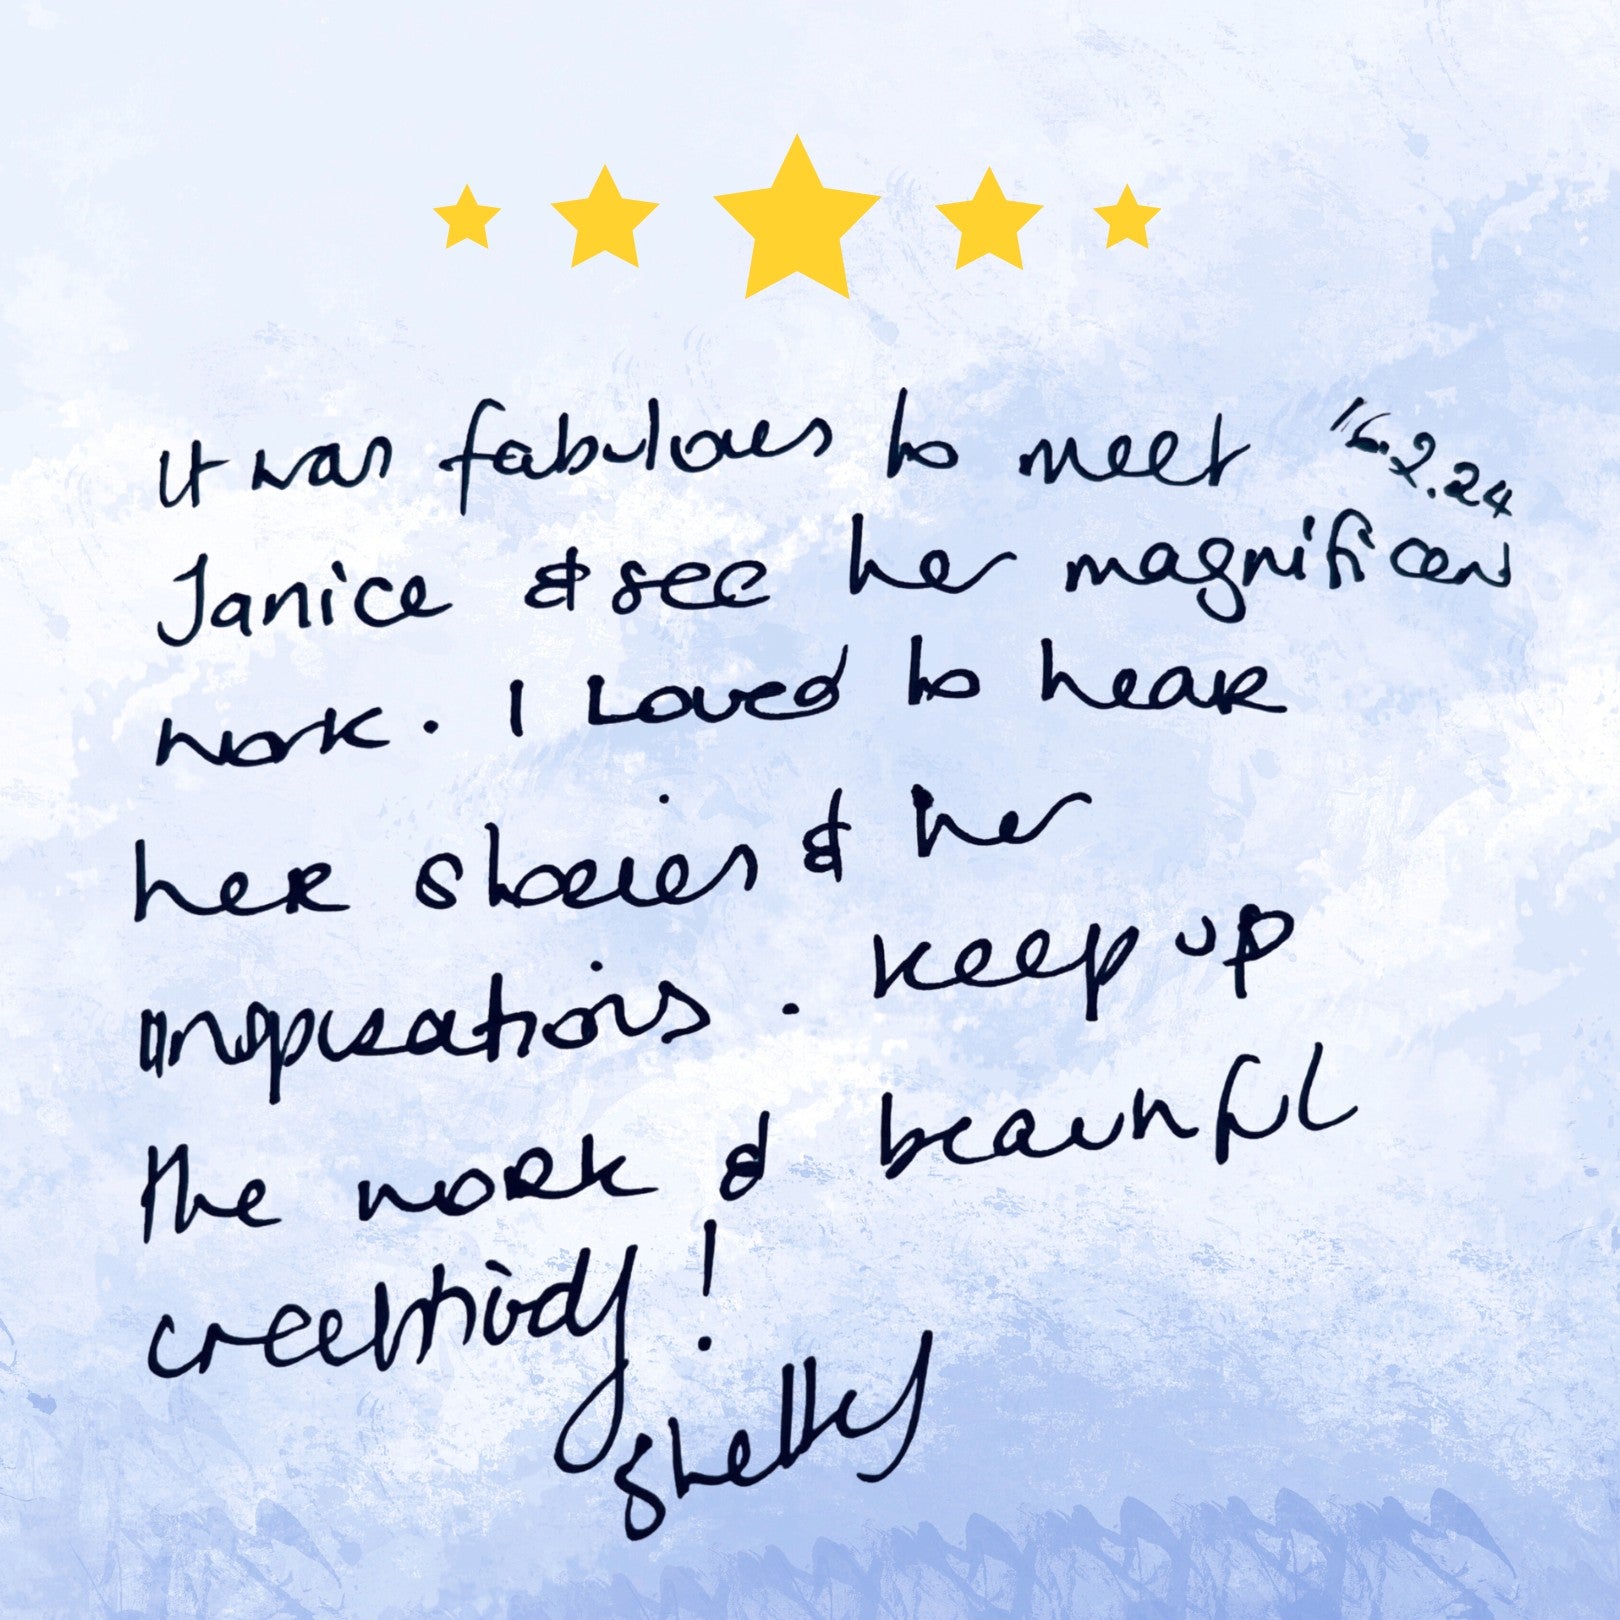 It was fabulous to meet 16.2.24
Janice & see her magnificent
work. I Loved to hear
her stories & her
inspirations. Keep up
the work & beautiful
creativity!
Shelley